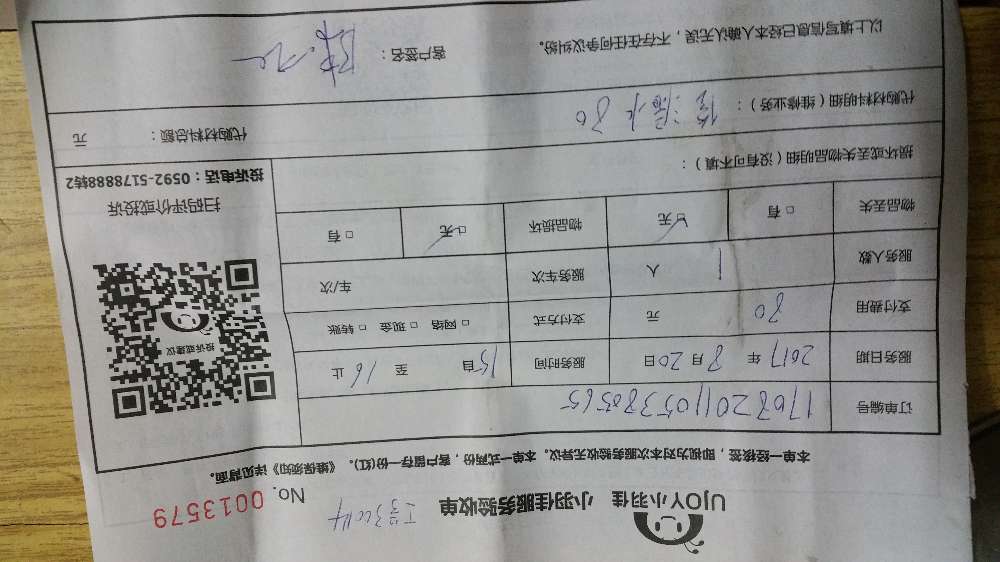 UJOY小羽佳 小羽佳服务验收单 工号3664 No. 0013579
本单一经核签，即视为对本次服务验收无异议。本单一式两份，客户留存一份(红)。《维保须知》详见背面。
订单编号
服务日期 2017年 8月20日 服务时间 15自 至 16 止
支付费用 80 元 支付方式 □ 网络 □ 现金 □ 转账
服务人数 1 人 服务车次 车/次
物品丢失 □ 有 □ 无 物品损坏 □ 无 □ 有
投诉或建议
扫码评价或投诉
投诉电话：0592-5178888转2
损坏或丢失物品明细（没有可不填）：
代购材料明细（维修业务）： 修漏水 80 代购材料总额： 元
以上填写信息已经本人确认无误，不存在任何争议纠纷。 客户签名：